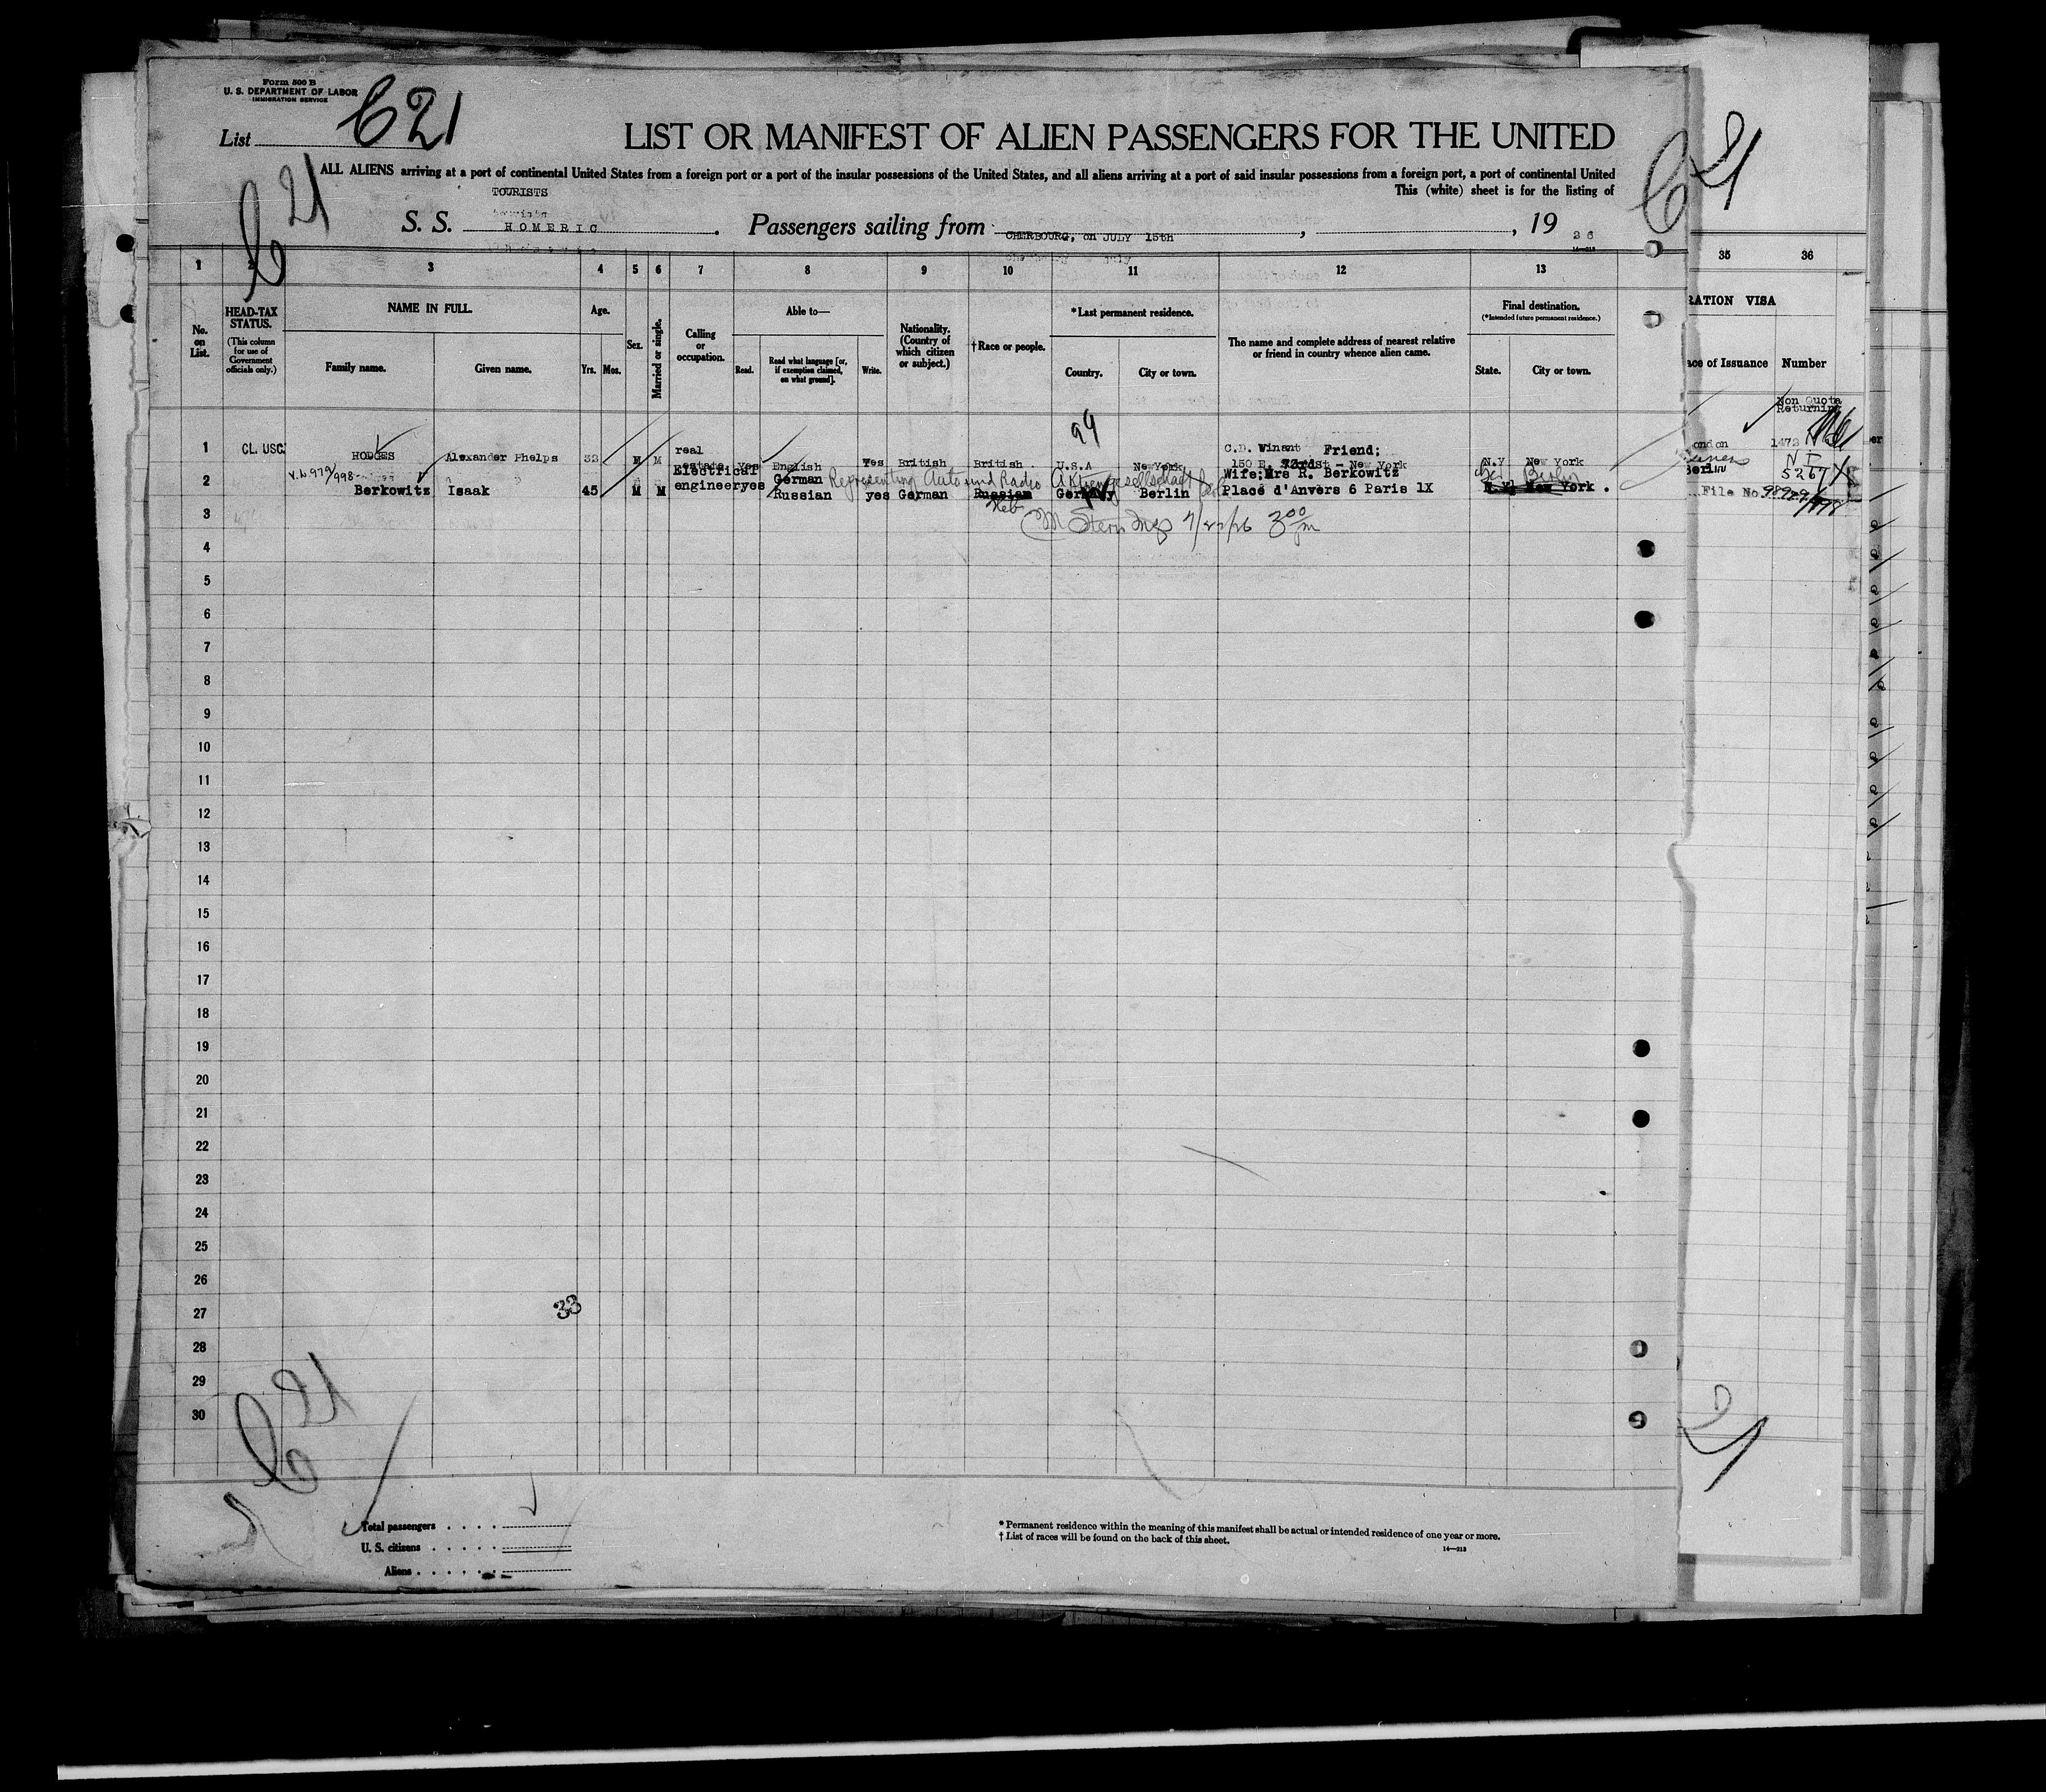 Form 500 B
U. S. DEPARTMENT OF LABOR
IMMIGRATION SERVICE
List 621
LIST OR MANIFEST OF ALIEN PASSENGERS FOR THE UNITED
ALL ALIENS arriving at a port of continental United States from a foreign port or a port of the insular possessions of the United States, and all aliens arriving at a port of said insular possessions from a foreign port, a port of continental United
This (white) sheet is for the listing of
TOURISTS
S. S. HOMERIC . Passengers sailing from CHERBOURG, on JULY 15th , , 19 26
14—213
1 2 3 4 5 6 7 8 9 10 11 12 13 35 36
No. on List.
HEAD-TAX STATUS.
(This column for use of Government officials only.)
NAME IN FULL.
Family name. Given name.
Age.
Yrs. Mos.
Sex.
Married or single.
Calling or occupation.
Able to—
Read. Read what language [or, if exemption claimed, on what ground]. Write.
Nationality. (Country of which citizen or subject.)
†Race or people.
*Last permanent residence.
Country. City or town.
The name and complete address of nearest relative or friend in country whence alien came.
Final destination.
(*Intended future permanent residence.)
State. City or town.
RATION VISA
ace of Issuance Number
Non Quota
Returning
1 CL. USC. HODGES Alexander Phelps 32 M M real estate yes English Yes British British U.S.A New York C.D. Winant Friend; 150 E. 72rd St - New York N.Y New York ondon 1472
V.L. 979/998
2 Berkowitz Isaak 45 M M Electrical engineer yes German Russian yes German Russian Heb Germany Berlin Wife;Mrs R. Berkowitz Place d'Anvers 6 Paris 1X N.Y. New York . Berlin 526
Representing Auto und Radio Aktiengesellschaft
File No.
3 M Stern Insp 7/22/26 3 00 pm
4
5
6
7
8
9
10
11
12
13
14
15
16
17
18
19
20
21
22
23
24
25
26
27
28
29
30
33
Total passengers . . . .
U. S. citizens . . . . .
Aliens . . . . . .
* Permanent residence within the meaning of this manifest shall be actual or intended residence of one year or more.
† List of races will be found on the back of this sheet.
14—213